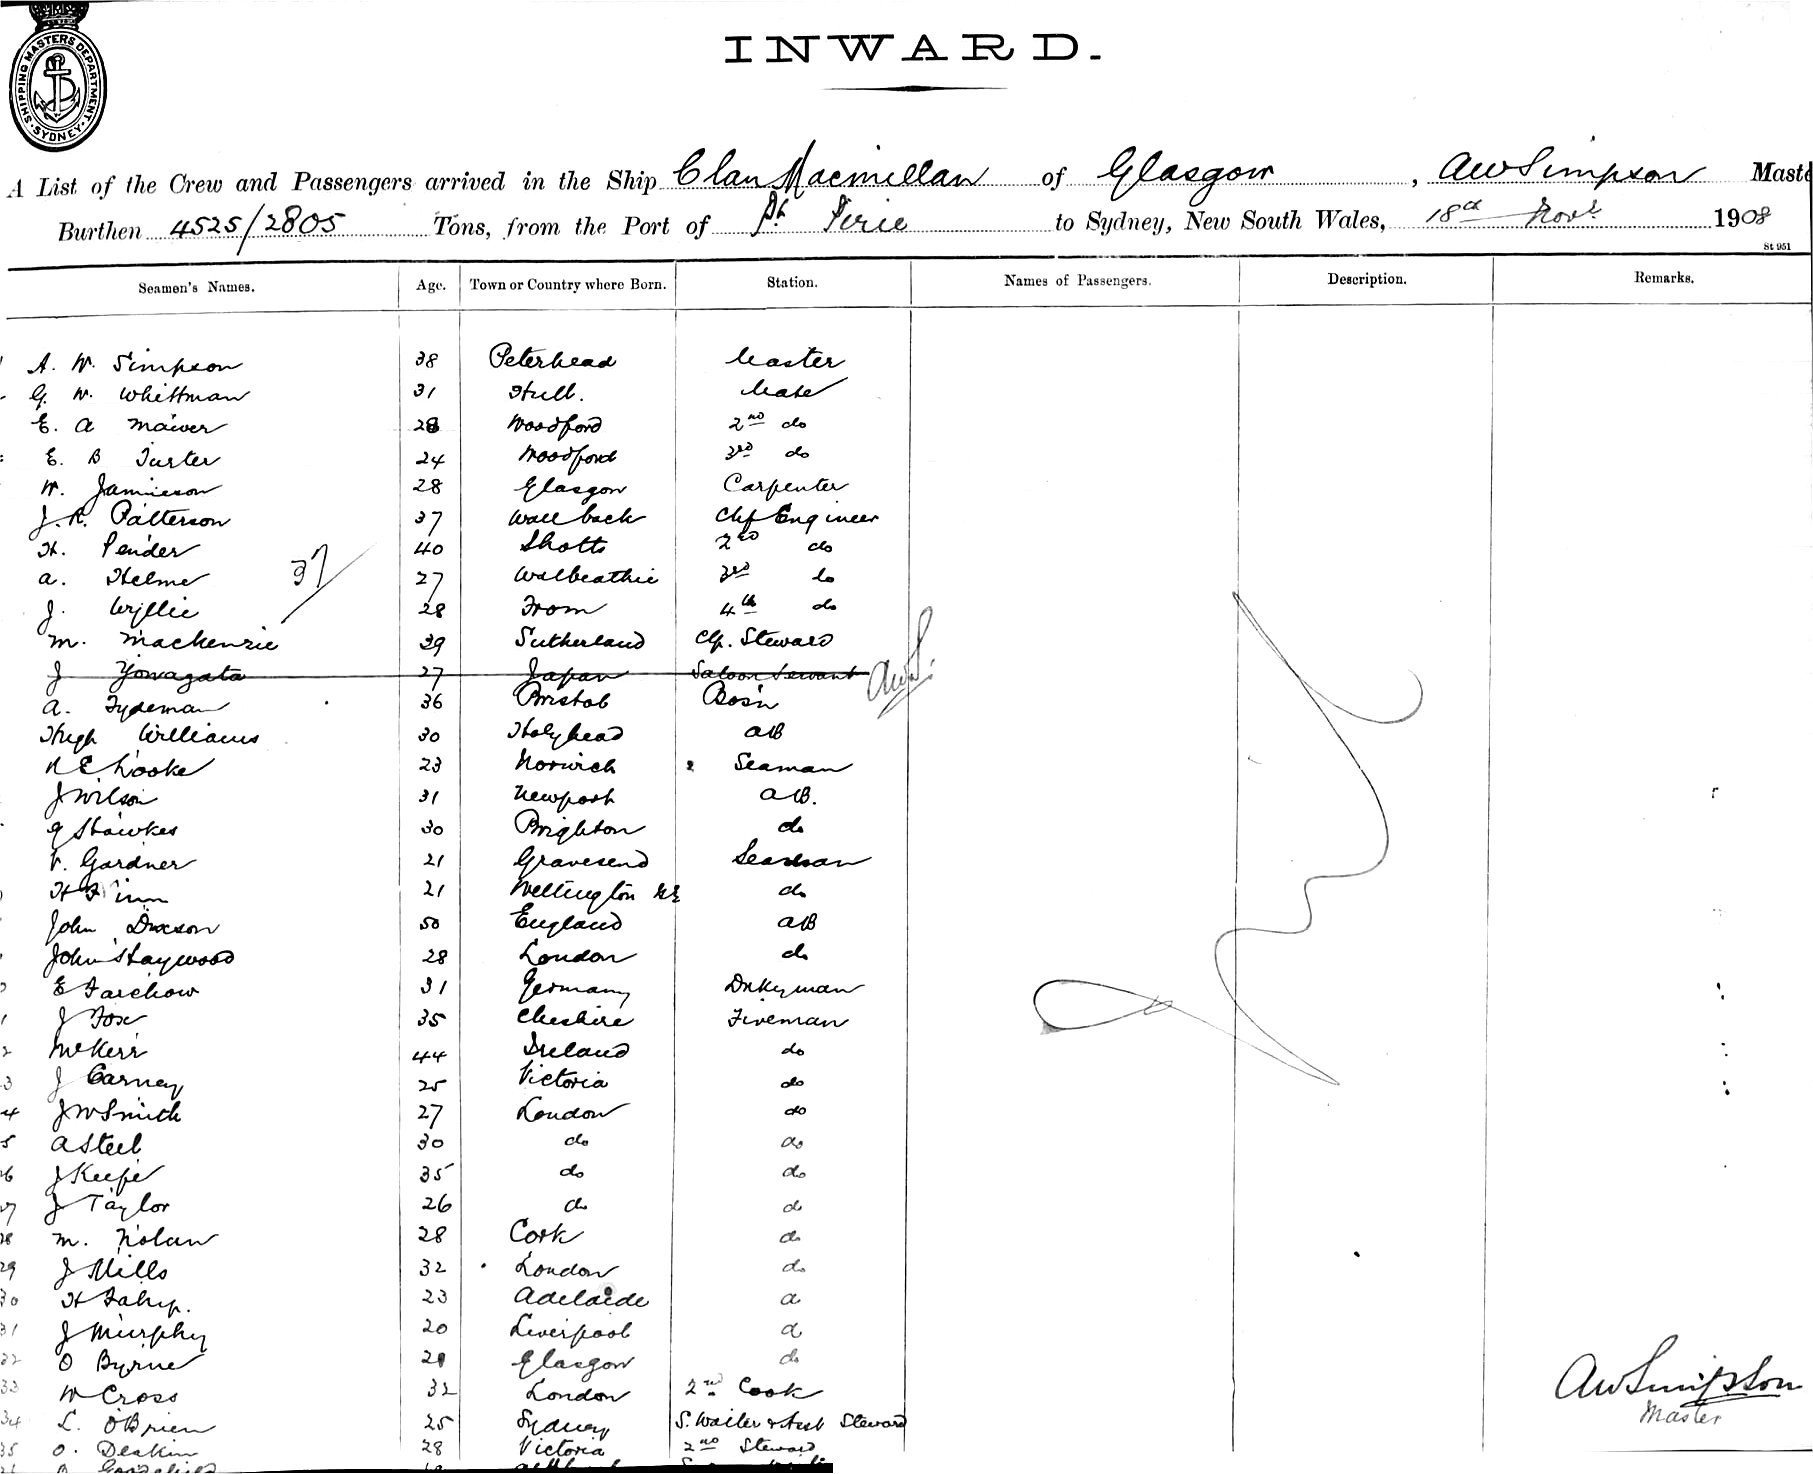 SHIPPING MASTERS DEPARTMENT. SYDNEY.
INWARD.
A List of the Crew and Passengers arrived in the Ship Clan Macmillan of Glasgow, AW Simpson Maste
Burthen 4525/2805 Tons, from the Port of Pt. Pirie to Sydney, New South Wales, 18th Novr 1908
St 951
Seamen's Names. Age. Town or Country where Born. Station. Names of Passengers. Description. Remarks.
A. W. Simpson 38 Peterhead Master
G. W. Whittman 31 Hull. Mate
E. A Maiver 28 Woodford 2nd do
E. B Turter 24 Woodford 3rd do
W. Jamieson 28 Glasgow Carpenter
J. R. Patterson 37 Wallback Chf Engineer
H. Pender 40 Shotts 2nd do
A. Helme 37 27 Walbeathie 3rd do
J. Wyllie 28 Troon 4th do
M. Mackenzie 39 Sutherland Chf. Steward
J Yowagata 27 Japan Saloon Servant AWS.
A. Tydeman 36 Bristol Bosn
Hugh Williams 30 Holyhead AB
23 Norwich Seaman
J Wilson 31 Newport AB.
G Hawkes 30 Brighton do
V. Gardner 21 Gravesend Seaman
H Finn 21 Wellington NZ do
John Dixson 50 England AB
John Haywood 28 London do
E Farchow 31 Germany Dnkyman
J Fox 35 Cheshire Fireman
McKerr 44 Ireland do
3 J Carney 25 Victoria do
4 J W Smith 27 London do
5 A Steel 30 do do
6 J Keefe 35 do do
7 J Taylor 26 do do
28 M. Nolan 28 Cork do
29 J Mills 32 London do
30 H Fahy. 23 Adelaide d
31 J Murphy 20 Liverpool d
32 O Byrne 21 Glasgow do
33 W Cross 32 London 2nd Cook
34 L. O'Brien 25 Sydney S. Waiter & Asst Steward
35 O. Deakin 28 Victoria 2nd Steward
AW Simpson
Master